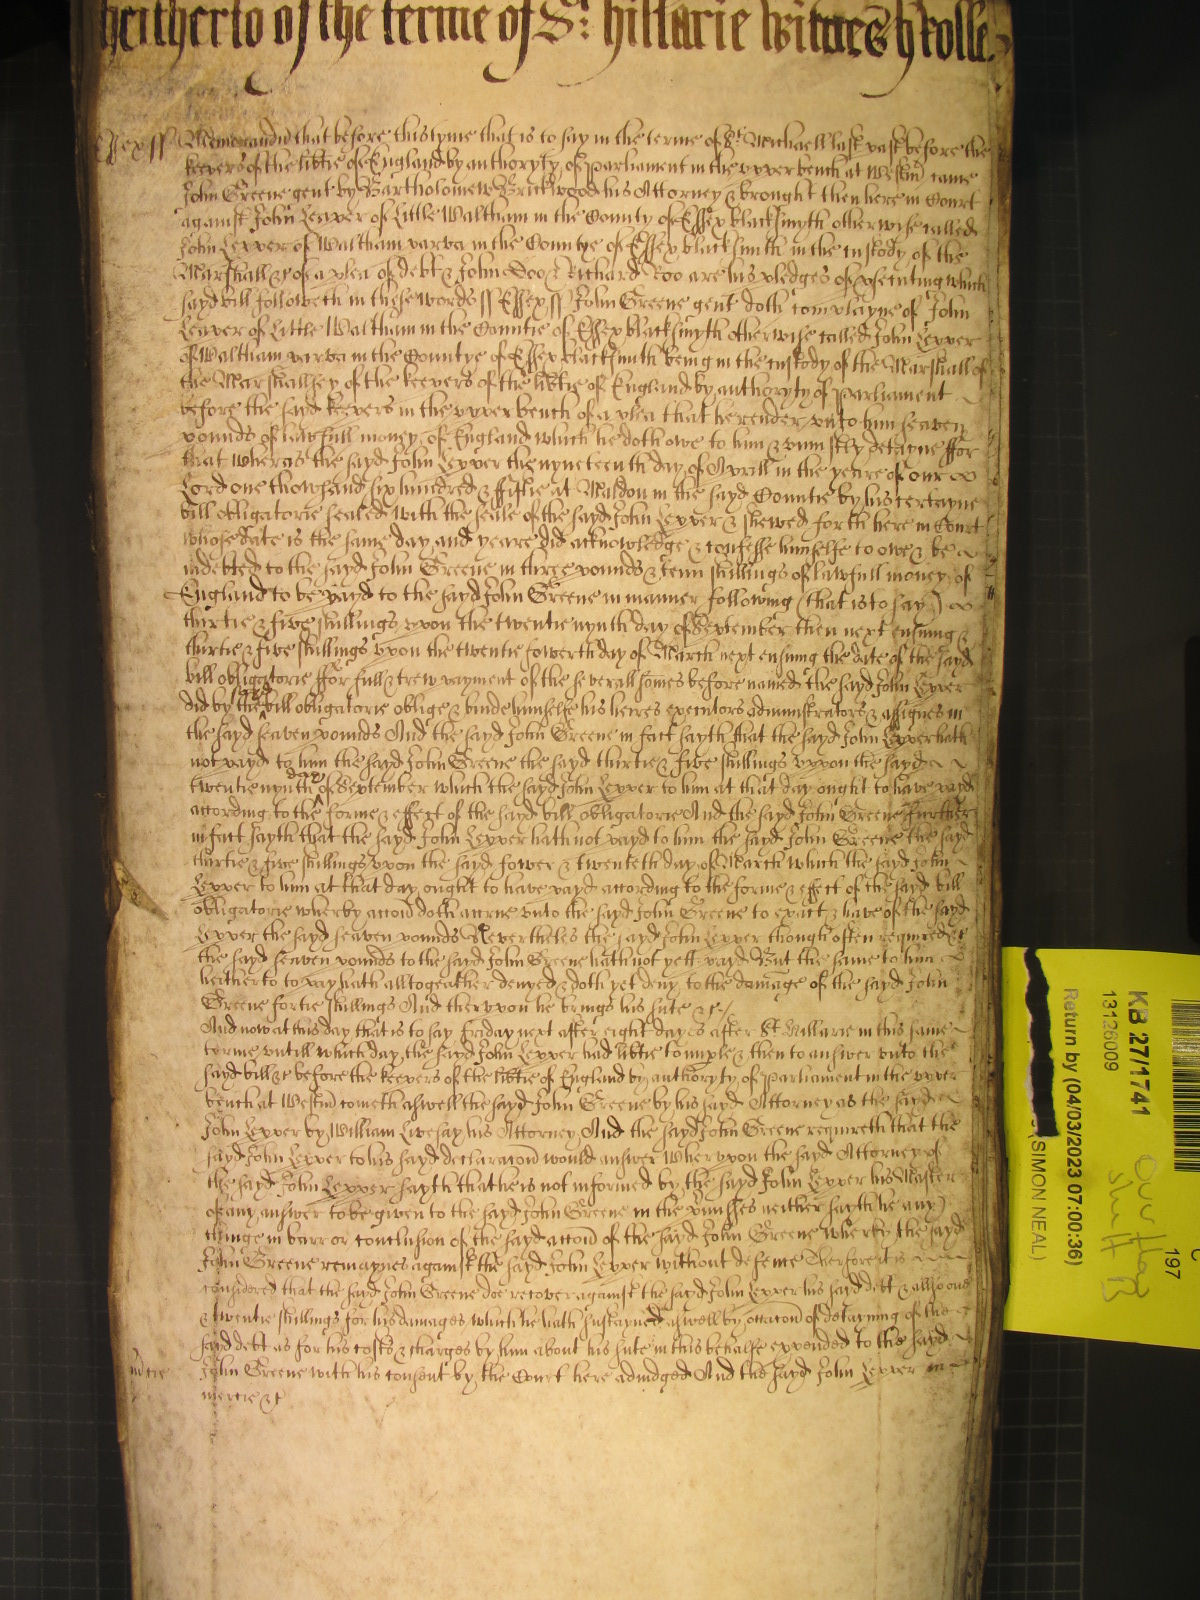 heitherto of the terme of St. hillarie witnes h Rolle.
Essex ss Memorandu that before this tyme that is to say in the terme of St Michaell last past before the
keepers of the libtie of England by authoryty of Parliament in the vpper bench at Westm came
John Greene gent by Bartholomew Brickwood his Attorney & brought then here in Court
against John Leaper of Little Waltham in the County of Essex blacksmyth otherwise called
John Lepper of Waltham parva in the Countye of Essex blacksmith in the custody of the
Marshall &c of a plea of debt & John Doo & Richard Roo are his pledges of psecuting which
sayd bill followeth in these words ss Essex ss John Greene gent doth complayne of John
Leaper of Little Waltham in the Countie of Essex blacksmyth otherwise called John Lepper
of Waltham parva in the Countye of Essex blacksmith being in the custody of the Marshall of
the Marshallsey of the keepers of the libtie of England by authoryty of Parliament
before the sayd keepers in the vpper bench of a plea that he render vnto him seaven
pounds of lawfull money of England which he doth owe to him & uniustly detayne ffor
that wheras the sayd John Lepper the nyneteenth day of Aprill in the yeare of our
Lord one thowsand six hundred & fiftie at Maldon in the sayd Countie by his certayne
bill obligatorie sealed with the seale of the sayd John Lepper & shewed forth here in Court
whose date is the same day and yeare did acknowledge & confesse himselfe to owe & be
indebted to the sayd John Greene in three pounds & tenn shillings of lawfull money of
England to be payd to the sayd John Greene in manner following (that is to say)
thirtie & five shillings vpon the twentie nynth day of September then next ensuing &
thirtie & five shillings vpon the twentie fowerth day of March next ensuing the date of the sayd
bill obligatorie ffor full & trew payment of the severall somes before named the sayd John Lepper
did by the sayd bill obligatorie oblige & binde himselfe his heires executors administrators & assignes in
the sayd seaven pounds And the sayd John Greene in fact sayth that the sayd John Lepper hath
not payd to him the sayd John Greene the sayd thirtie & five shillings vppon the sayd
twentie nynth day of September which the sayd John Lepper to him at that day ought to have payd
according to the forme & effect of the sayd bill obligatorie And the sayd John Greene further
in fact sayth that the sayd John Lepper hath not payd to him the sayd John Greene the sayd
thirtie & five shillings vpon the sayd fower & twenteth day of March which the sayd John
Lepper to him at that day ought to have payd according to the forme & effect of the sayd bill
obligatorie wherby accon doth accrue vnto the sayd John Greene to exact & have of the sayd
Lepper the sayd seaven pounds Nevertheles the sayd John Lepper though often required &c
the sayd seaven pounds to the sayd John Greene hath not yett payd But the same to him
heitherto to pay hath alltogeather denyed & doth yet deny to the damage of the sayd John
Greene fortie shillings And thervpon he brings his sute &c
And now at this day that is to say Friday next after eight dayes after St Hillarie in this same
terme vntill which day the sayd John Lepper had libtie to imple & then to answer vnto the
sayd bill &c before the keepers of the libtie of England by authoryty of Parliament in the vpper
bench at Westm cometh aswell the sayd John Greene by his sayd Attorney as the sayd
John Lepper by William Livesay his Attorney And the sayd John Greene requireth that the
sayd John Lepper to his sayd declaracon would answer Whervpon the sayd Attorney of
the sayd John Lepper sayth that he is not informed by the sayd John Lepper his Master
of any answer to be given to the sayd John Greene in the pmisses neither sayth he any
thinge in barr or conclusion of the sayd accon of the sayd John Greene wherby the sayd
John Greene remaynes against the sayd John Lepper without defence Therfore it is
considered that the sayd John Greene doe recover against the sayd John Lepper his sayd debt & allso one
& twentie shillings for his damages which he hath sustayned aswell by occacon of detayning of the
sayd debt as for his costs & charges by him about his sute in this behalfe expended to the sayd
John Greene with his consent by the Court here adiudged And the sayd John Lepper in
mercie &c
KB 27/1741
13126009
Return by (04/03/2023 07:00:36)
(SIMON NEAL)
197